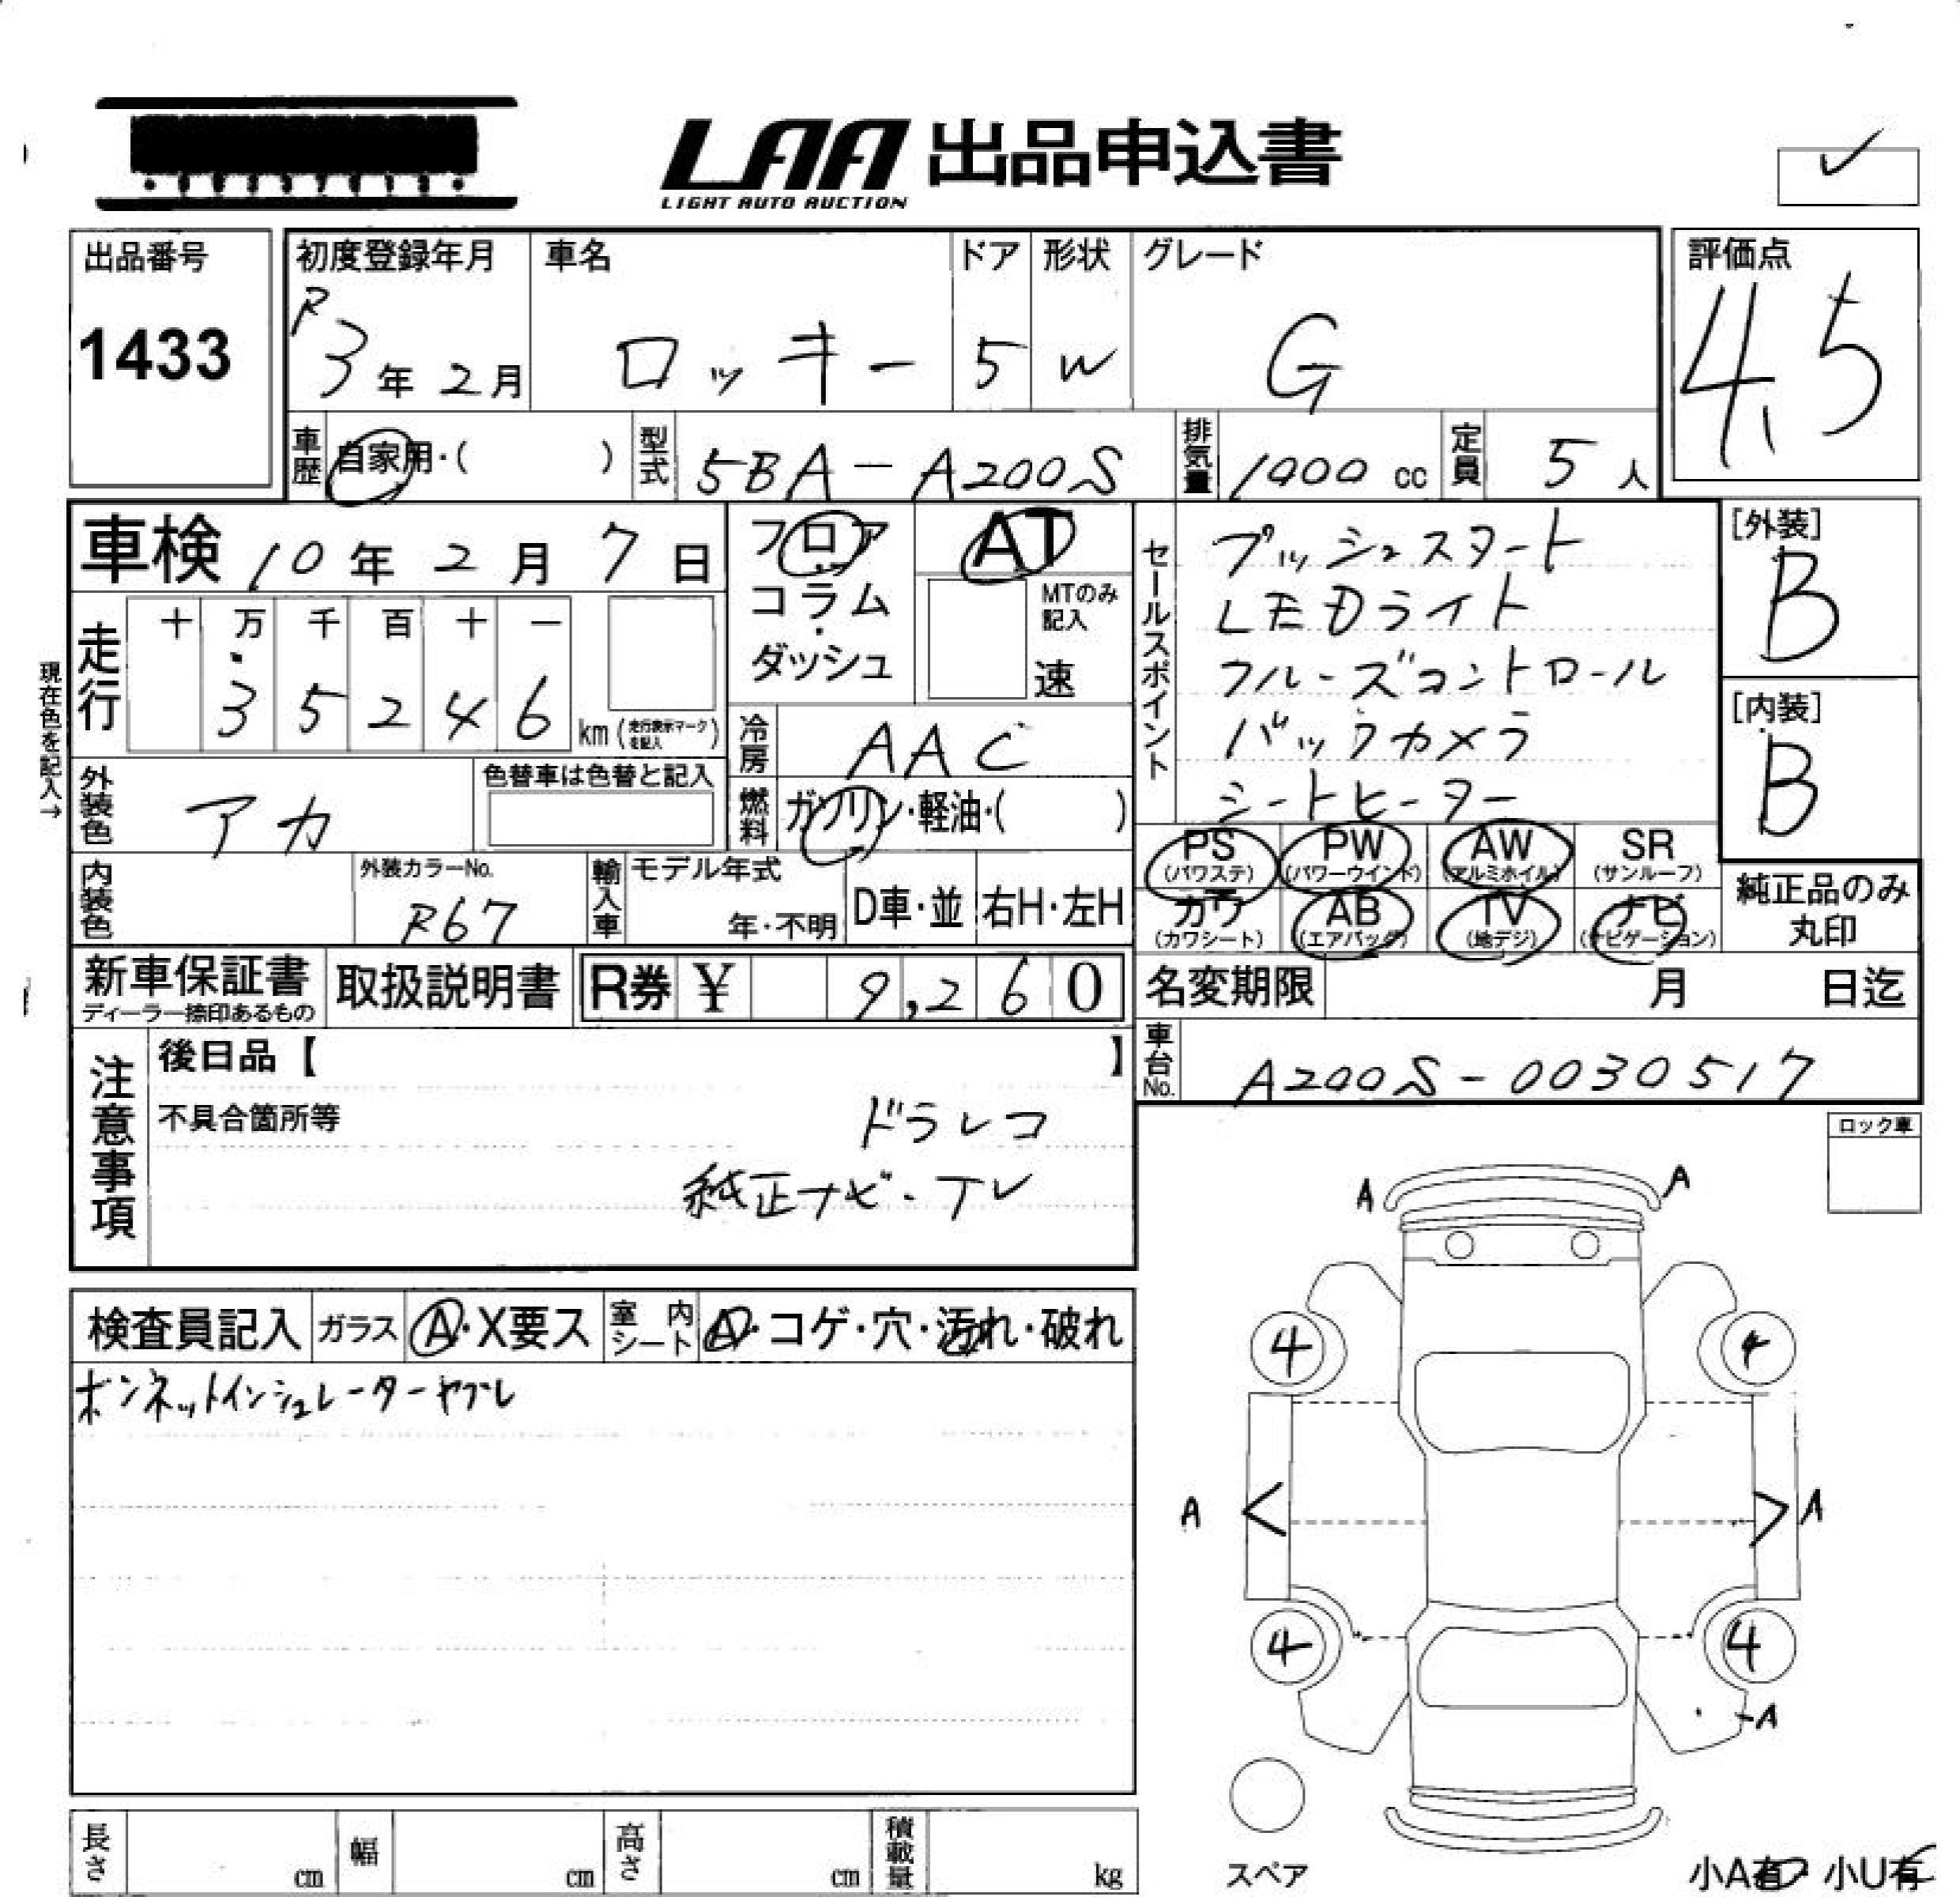 LAA 出品申込書
LIGHT AUTO AUCTION
✓
出品番号
1433
初度登録年月
R3年2月
車名
ロッキー
ドア
5
形状
W
グレード
G
評価点
4.5
車歴
自家用・( )
型式
5BA-A200S
排気量
1000 cc
定員
5人
車検 10年2月7日
フロア
コラム
・
ダッシュ
AT
MTのみ
記入
速
セールスポイント
プッシュスタート
LEDライト
クルーズコントロール
バックカメラ
シートヒーター
[外装]
B
[内装]
B
現在色を記入→
走行
十 万 千 百 十 一
3 5 2 4 6 km (走行表示マークを記入)
冷房
AAC
外装色
アカ
色替車は色替と記入
燃料
ガソリン・軽油・( )
PS
(パワステ)
PW
(パワーウインド)
AW
(アルミホイル)
SR
(サンルーフ)
カワ
(カワシート)
AB
(エアバッグ)
TV
(地デジ)
ナビ
(ナビゲーション)
純正品のみ
丸印
内装色
外装カラーNo.
R67
輸入車
モデル年式
年・不明
D車・並
右H・左H
新車保証書
ディーラー捺印あるもの
取扱説明書
R券 ¥ 9,260
名変期限 月 日迄
車台No.
A200S-0030517
注意事項
後日品【 】
不具合箇所等
ドラレコ
純正ナビ・TV
ロック車
検査員記入
ガラス
A・X要ス
室内シート
A・コゲ・穴・汚れ・破れ
ボンネットインシュレーターヤブレ
A A
4 4
A < > A
4 4
A
スペア
小A有・小U有
長さ cm
幅 cm
高さ cm
積載量 kg